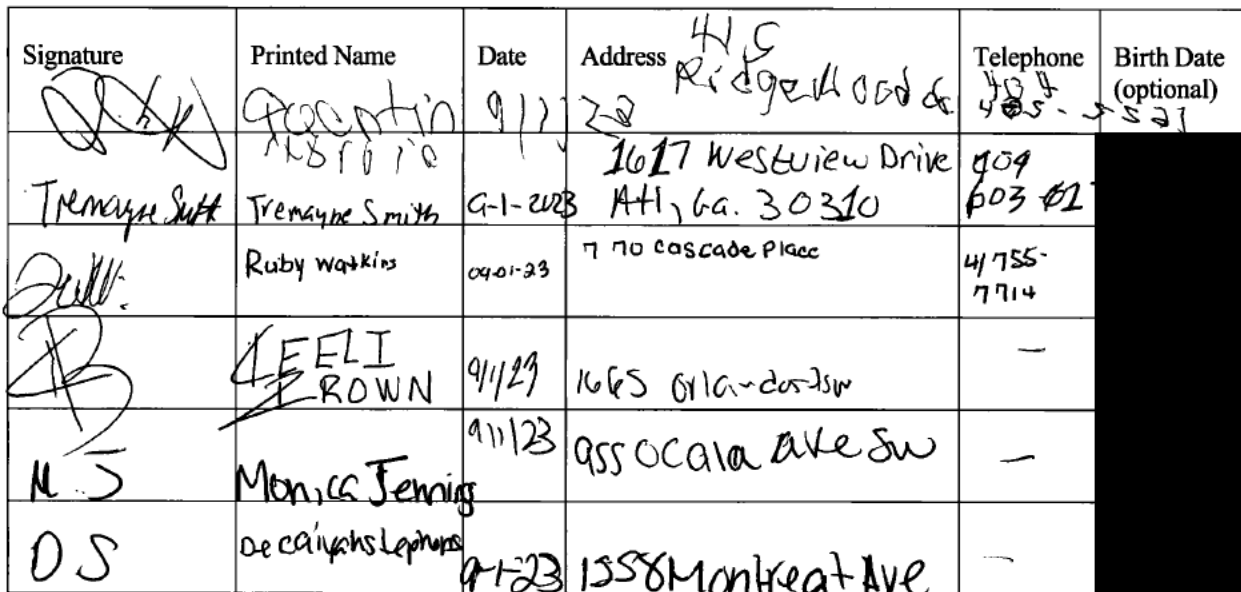 Signature Printed Name Date Address Telephone Birth Date
(optional)
41 G
Ridgewood
404
Tremayne Smith Tremayne Smith 9-1-2023 1617 Westview Drive
Atl, Ga. 30310
Ruby Watkins 09-01-23 770 Cascade Place 4/755-
7714
KEELI
BROWN 9/1/23 1665 —
M.J Monica Jennings 9/1/23 955 Ocala Ave SW —
D S 9-1-23 1558 Montreat Ave —